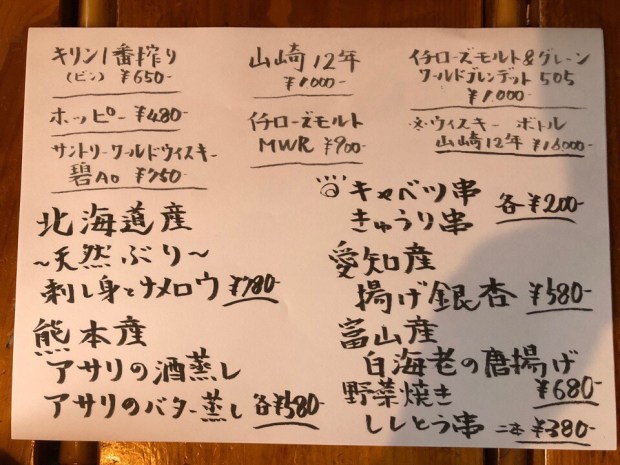 キリン一番搾り
(ビン) ¥650-
ホッピー ¥480-
サントリーワールドウィスキー
碧Ao ¥750-
山崎12年
¥1000-
イチローズモルト
MWR ¥900-
イチローズモルト&グレーン
ワールドブレンデット505
¥1000-
※ウィスキー ボトル
山崎12年 ¥16000-
キャベツ串
きゅうり串
各¥200-
北海道産
~天然ぶり~
刺し身とナメロウ ¥780-
熊本産
アサリの酒蒸し
アサリのバター蒸し 各¥580-
愛知産
揚げ銀杏 ¥580-
富山産
白海老の唐揚げ
¥680-
野菜焼き
ししとう串 二本¥380-